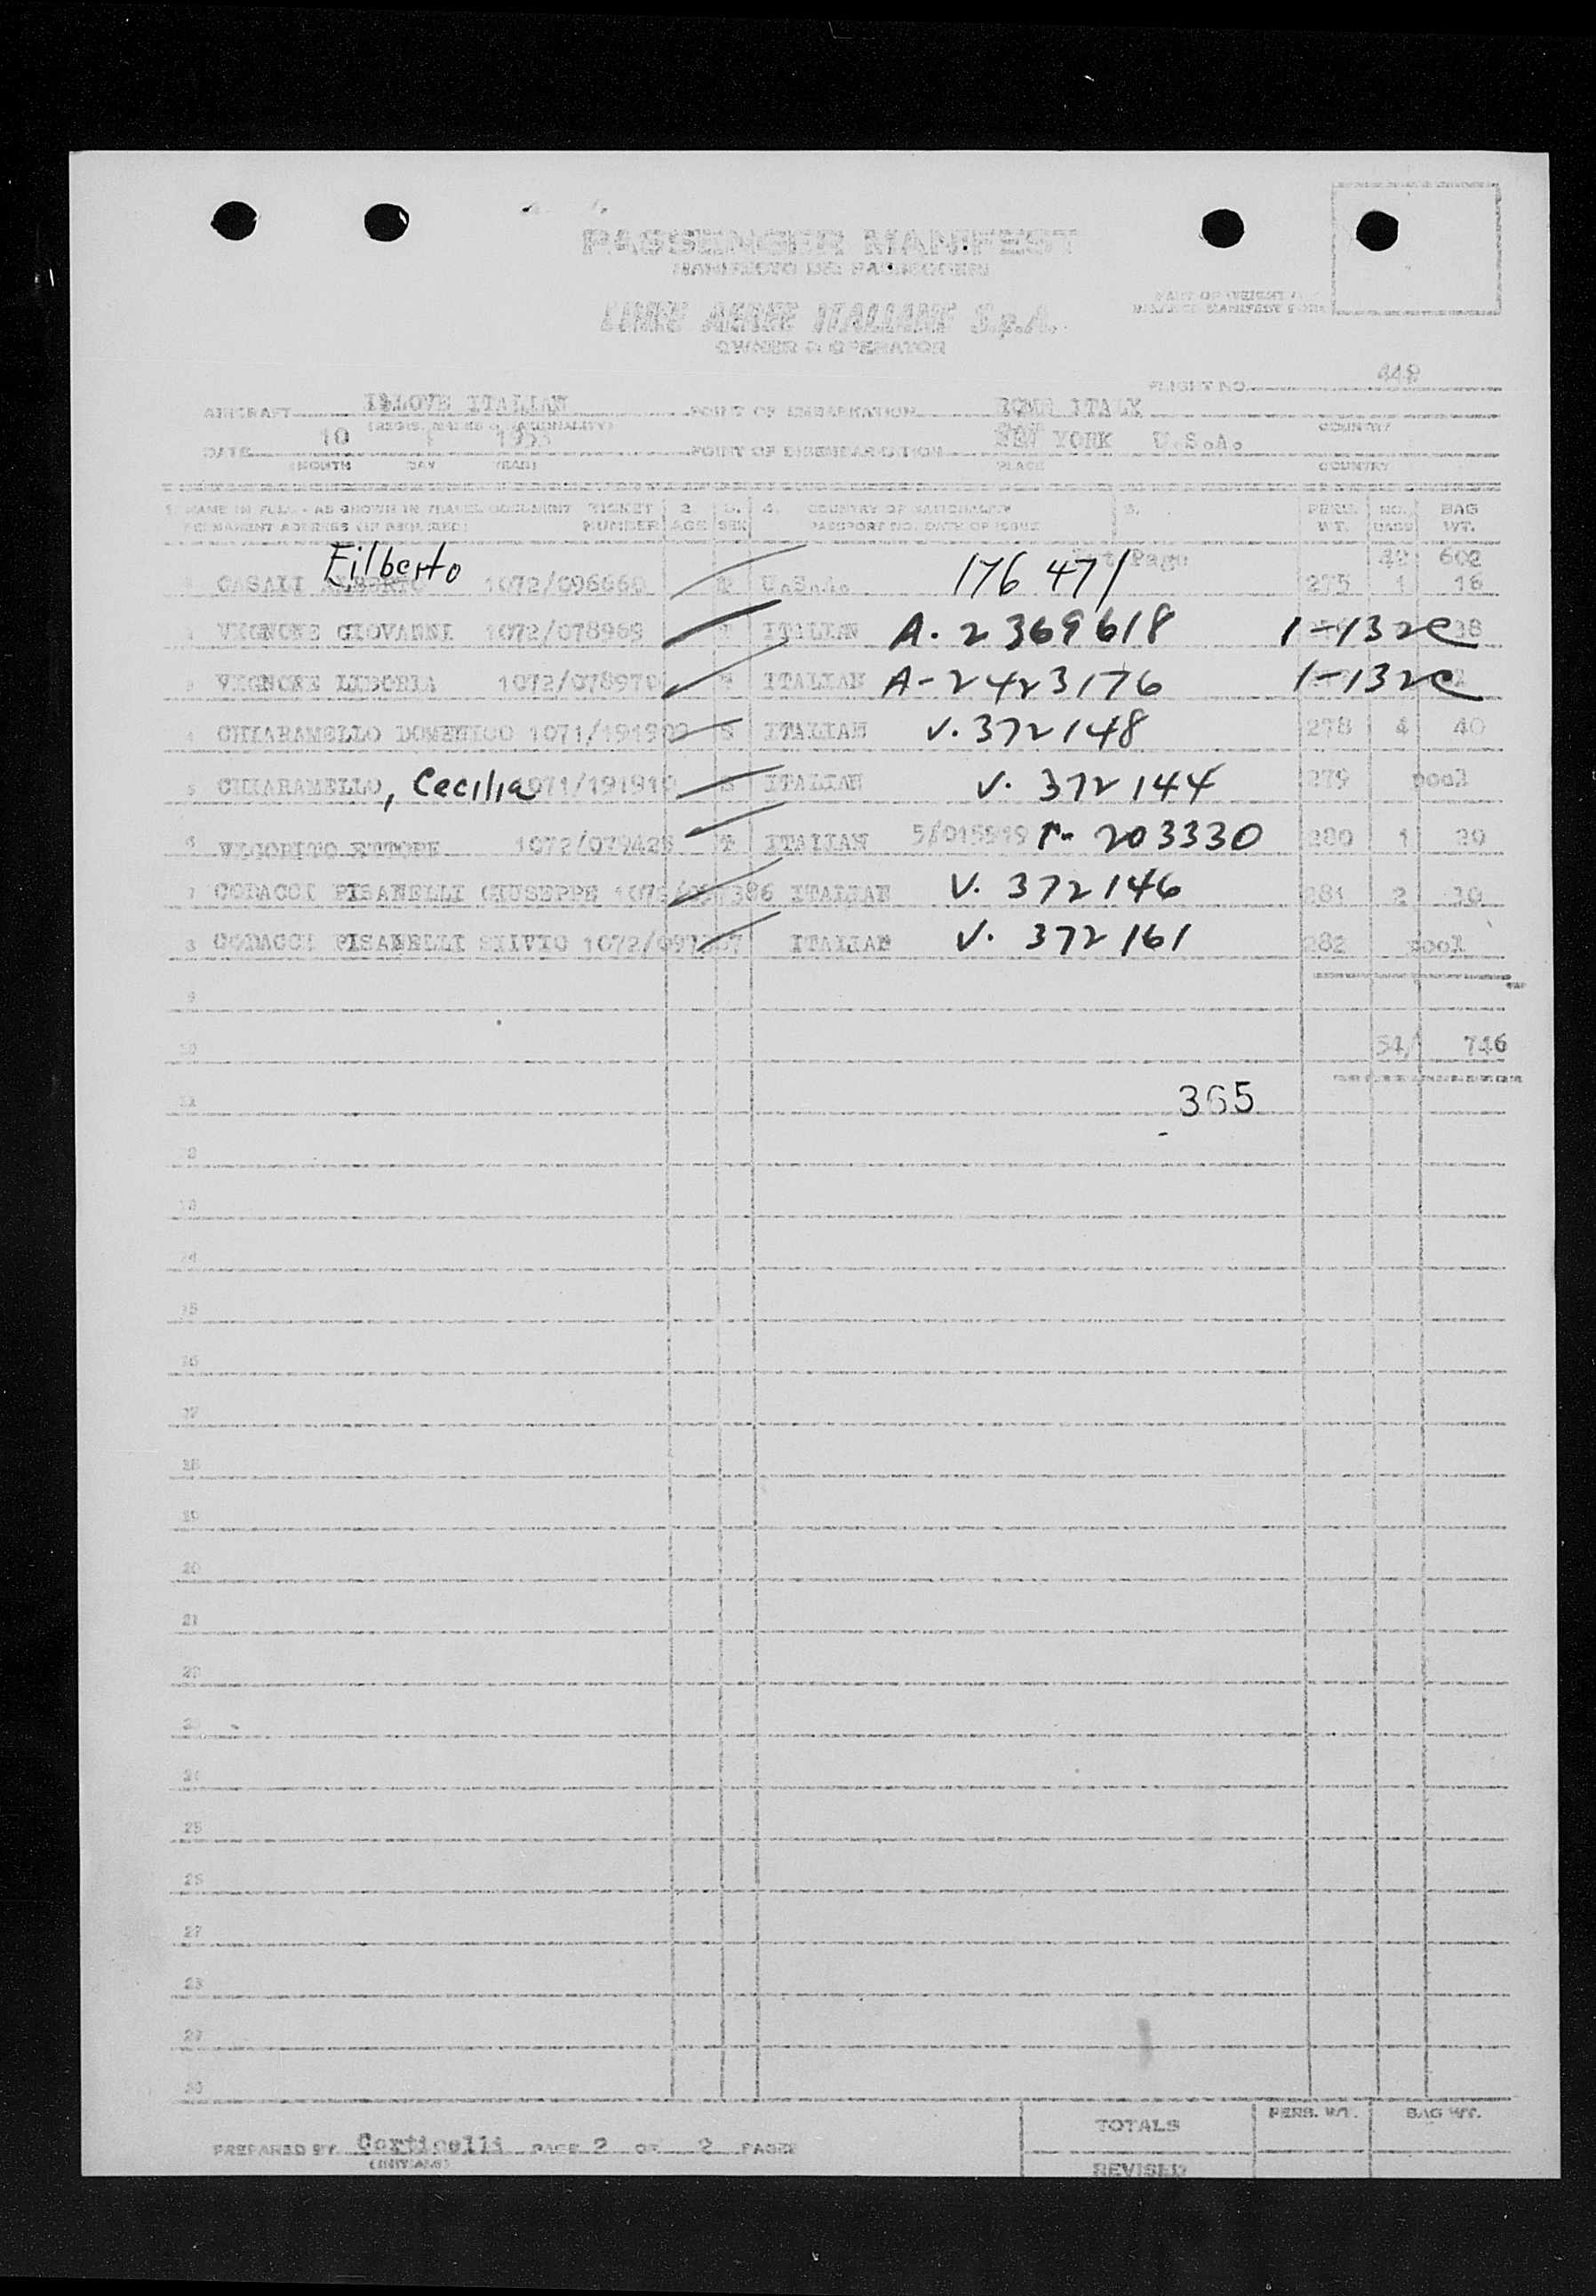 PASSENGER MANIFEST
MANIFESTO DEI PASSEGGERI
LINEE AEREE ITALIANE S.p.A.
OWNER O OPERATOR
PART OF WEIGHT
BALANCE MANIFEST FORM
FLIGHT NO. 442
AIRCRAFT I-LOVE ITALIAN POINT OF EMBARKATION ROME ITALY
COUNTRY
DATE 10 1 1953 POINT OF DISEMBARKATION NEW YORK U.S.A.
(MONTH DAY YEAR) PLACE COUNTRY
1. NAME IN FULL - AS SHOWN IN TRAVEL DOCUMENT TICKET 2. 3. 4. COUNTRY OF NATIONALITY 5. PERS. NO. BAG
PERMANENT ADDRESS (IF REQUIRED) NUMBER AGE SEX PASSPORT NO. DATE OF ISSUE WT. BAGS WT.
Filberto Page 42 602
CASALI ALBERTO 1072/096660 U.S.A. 176 471 275 1 18
VIGNONE GIOVANNI 1072/078969 ITALIAN A. 2 369 618 1-132c 38
3 VIGNONE LIBORIA 1072/078970 ITALIAN A-2423176 1-132c
4 CHIARAMELLO DOMENICO 1071/191909 S ITALIAN V. 372148 278 4 40
5 CHIARAMELLO, Cecilia 1071/191910 S ITALIAN V. 372 144 279 pool
6 VIGORITO ETTORE 1072/079428 T ITALIAN 5/015919 P- 203330 280 1 20
7 CODACCI PISANELLI GIUSEPPE 386 ITALIAN V. 372146 281 2 30
8 CODACCI PISANELLI SILVIO ITALIAN V. 372 161 282 pool
9
10 51/ 746
11 365
2
13
14
15
16
17
18
19
20
21
22
23
24
25
26
27
28
29
30
TOTALS PERS. WT. BAG WT.
PREPARED BY Cortinelli PAGE 2 OF 2 PAGES
(INITIALS)
REVISED